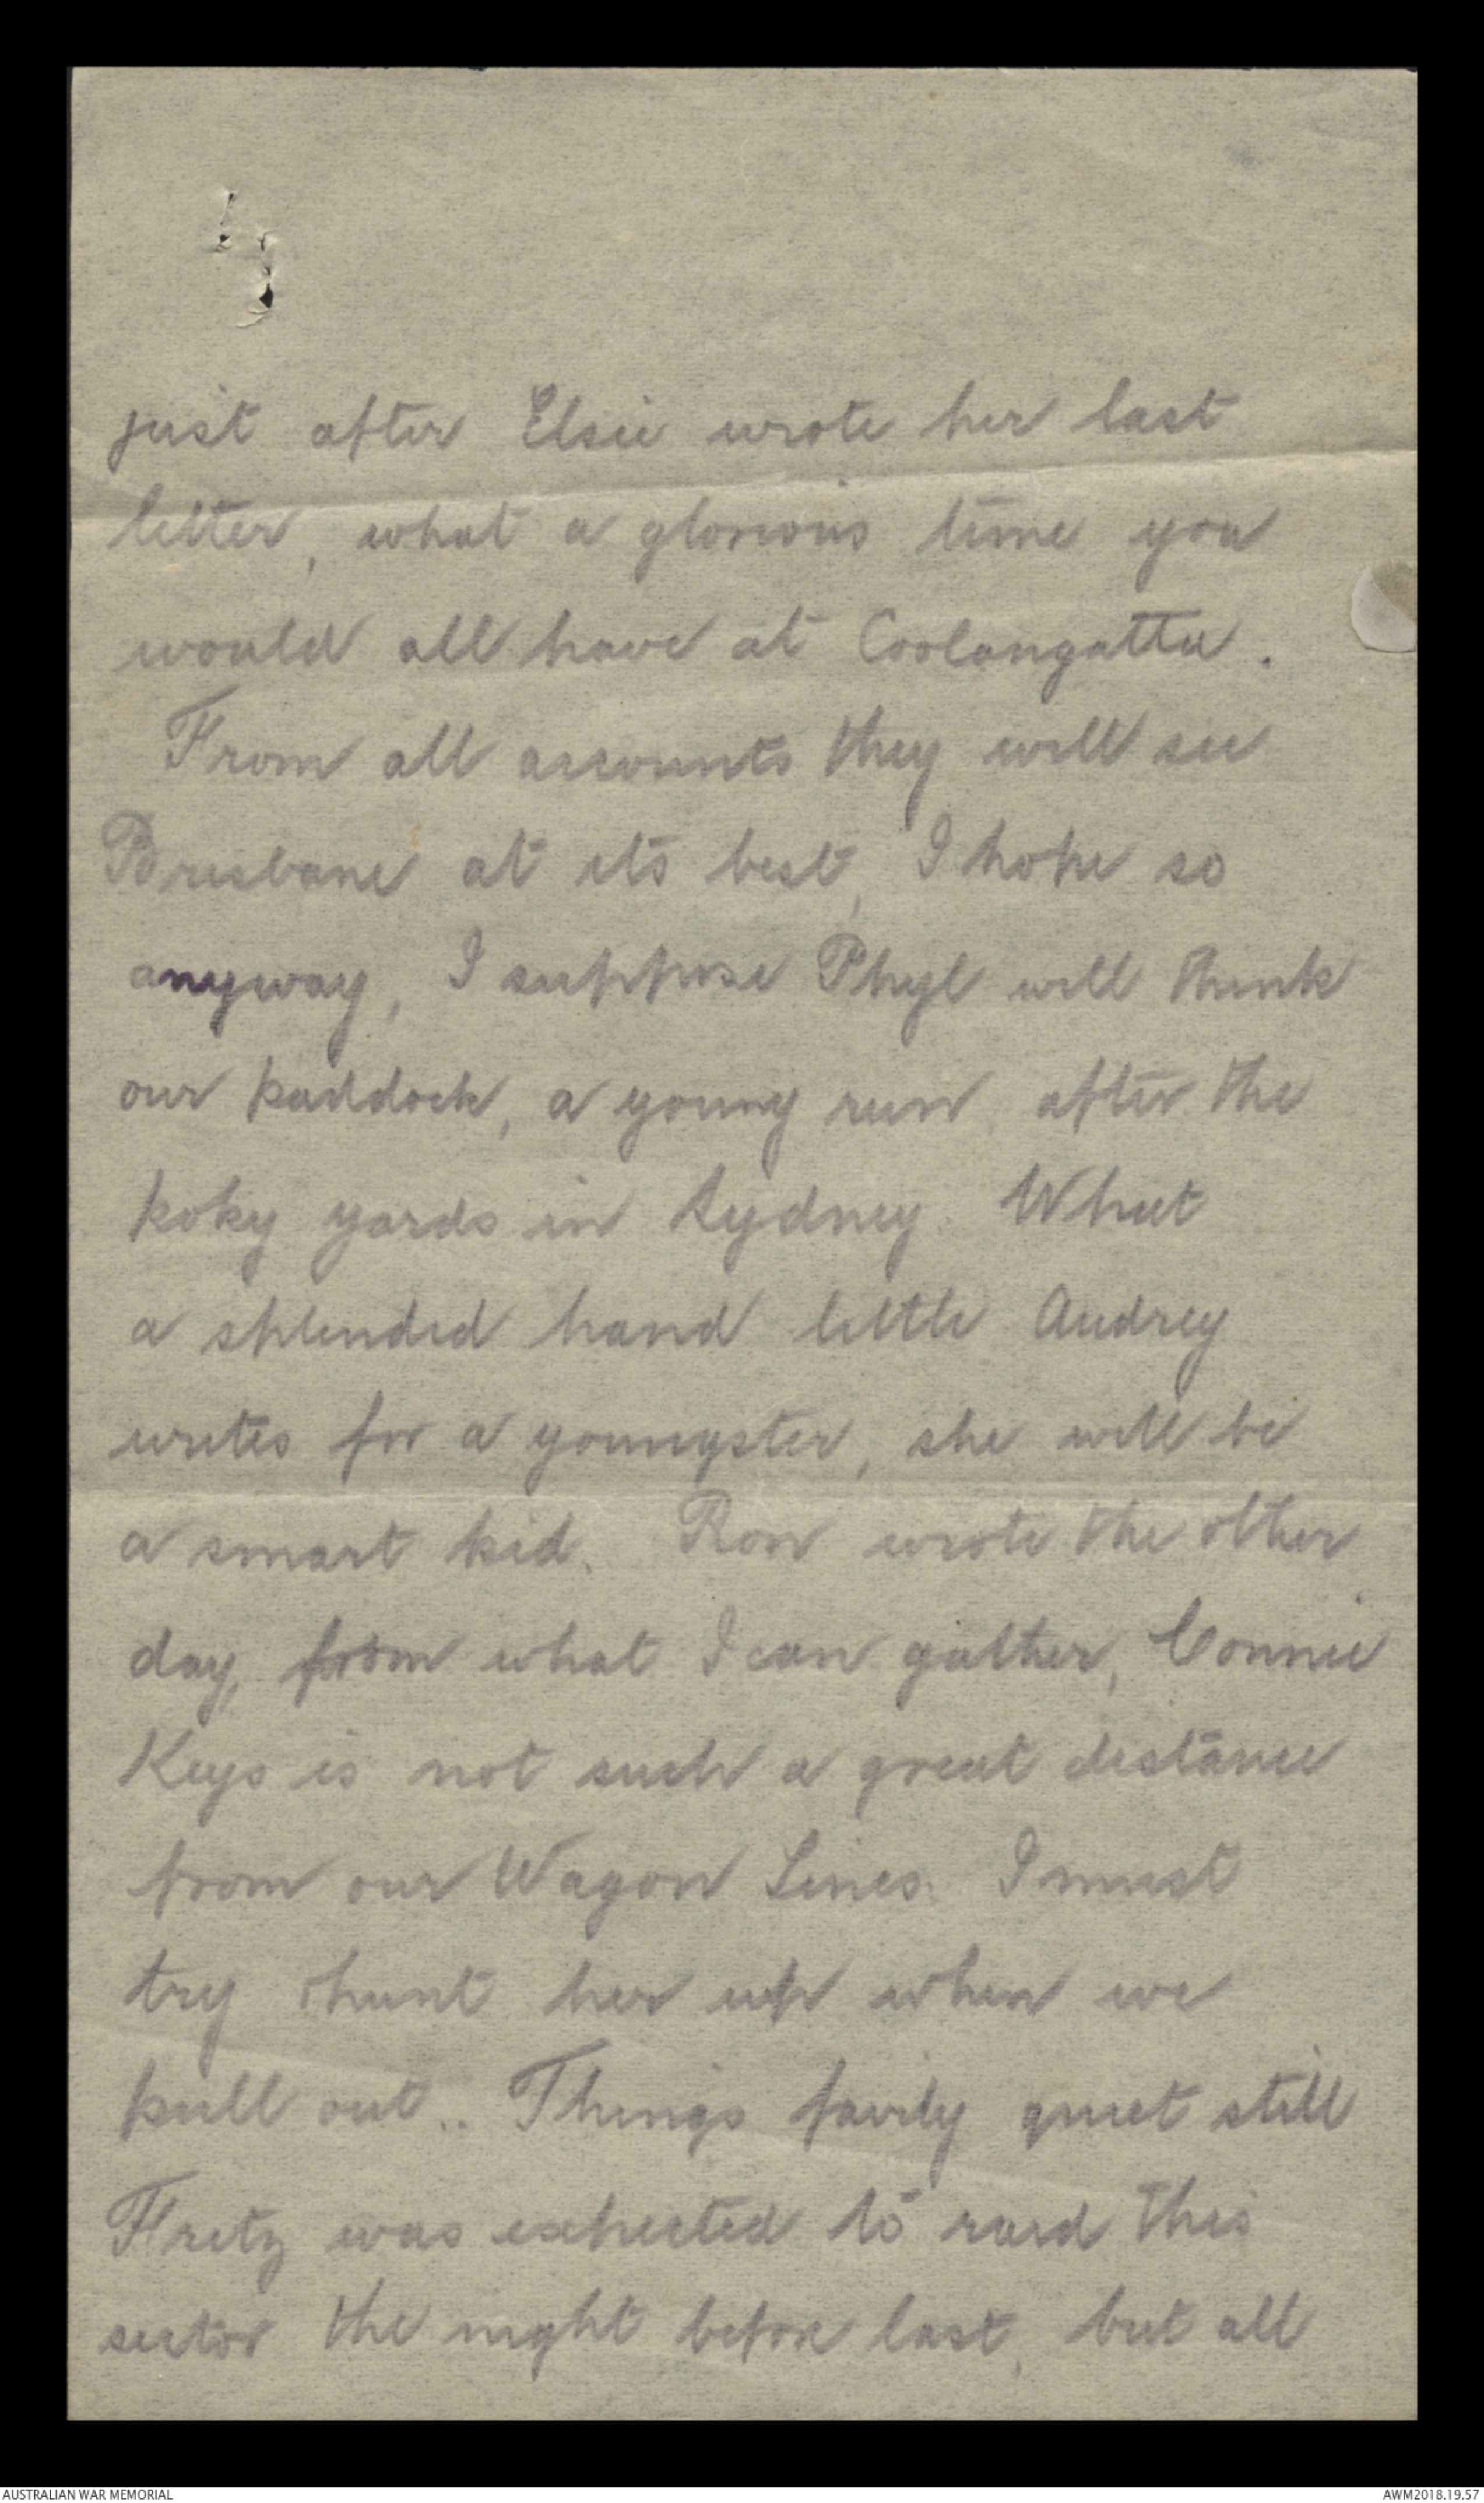 just after Elsie wrote her last
letter, what a glorious time you
would all have at Coolangatta.
From all accounts they will see
Brisbane at its best, I hope so
anyway, I suppose Phyl will think
our paddock, a young run after the
poky yards in Sydney. What
a splendid hand little Audrey
writes for a youngster, she will be
a smart kid. Ron wrote the other
day, from what I can gather, Connie
Keys is not such a great distance
from our Wagon Lines. I must
try & hunt her up when we
pull out.. Things fairly quiet still
Fritz was expected to raid this
sector the night before last, but all
AUSTRALIAN WAR MEMORIAL
AWM2018.19.57